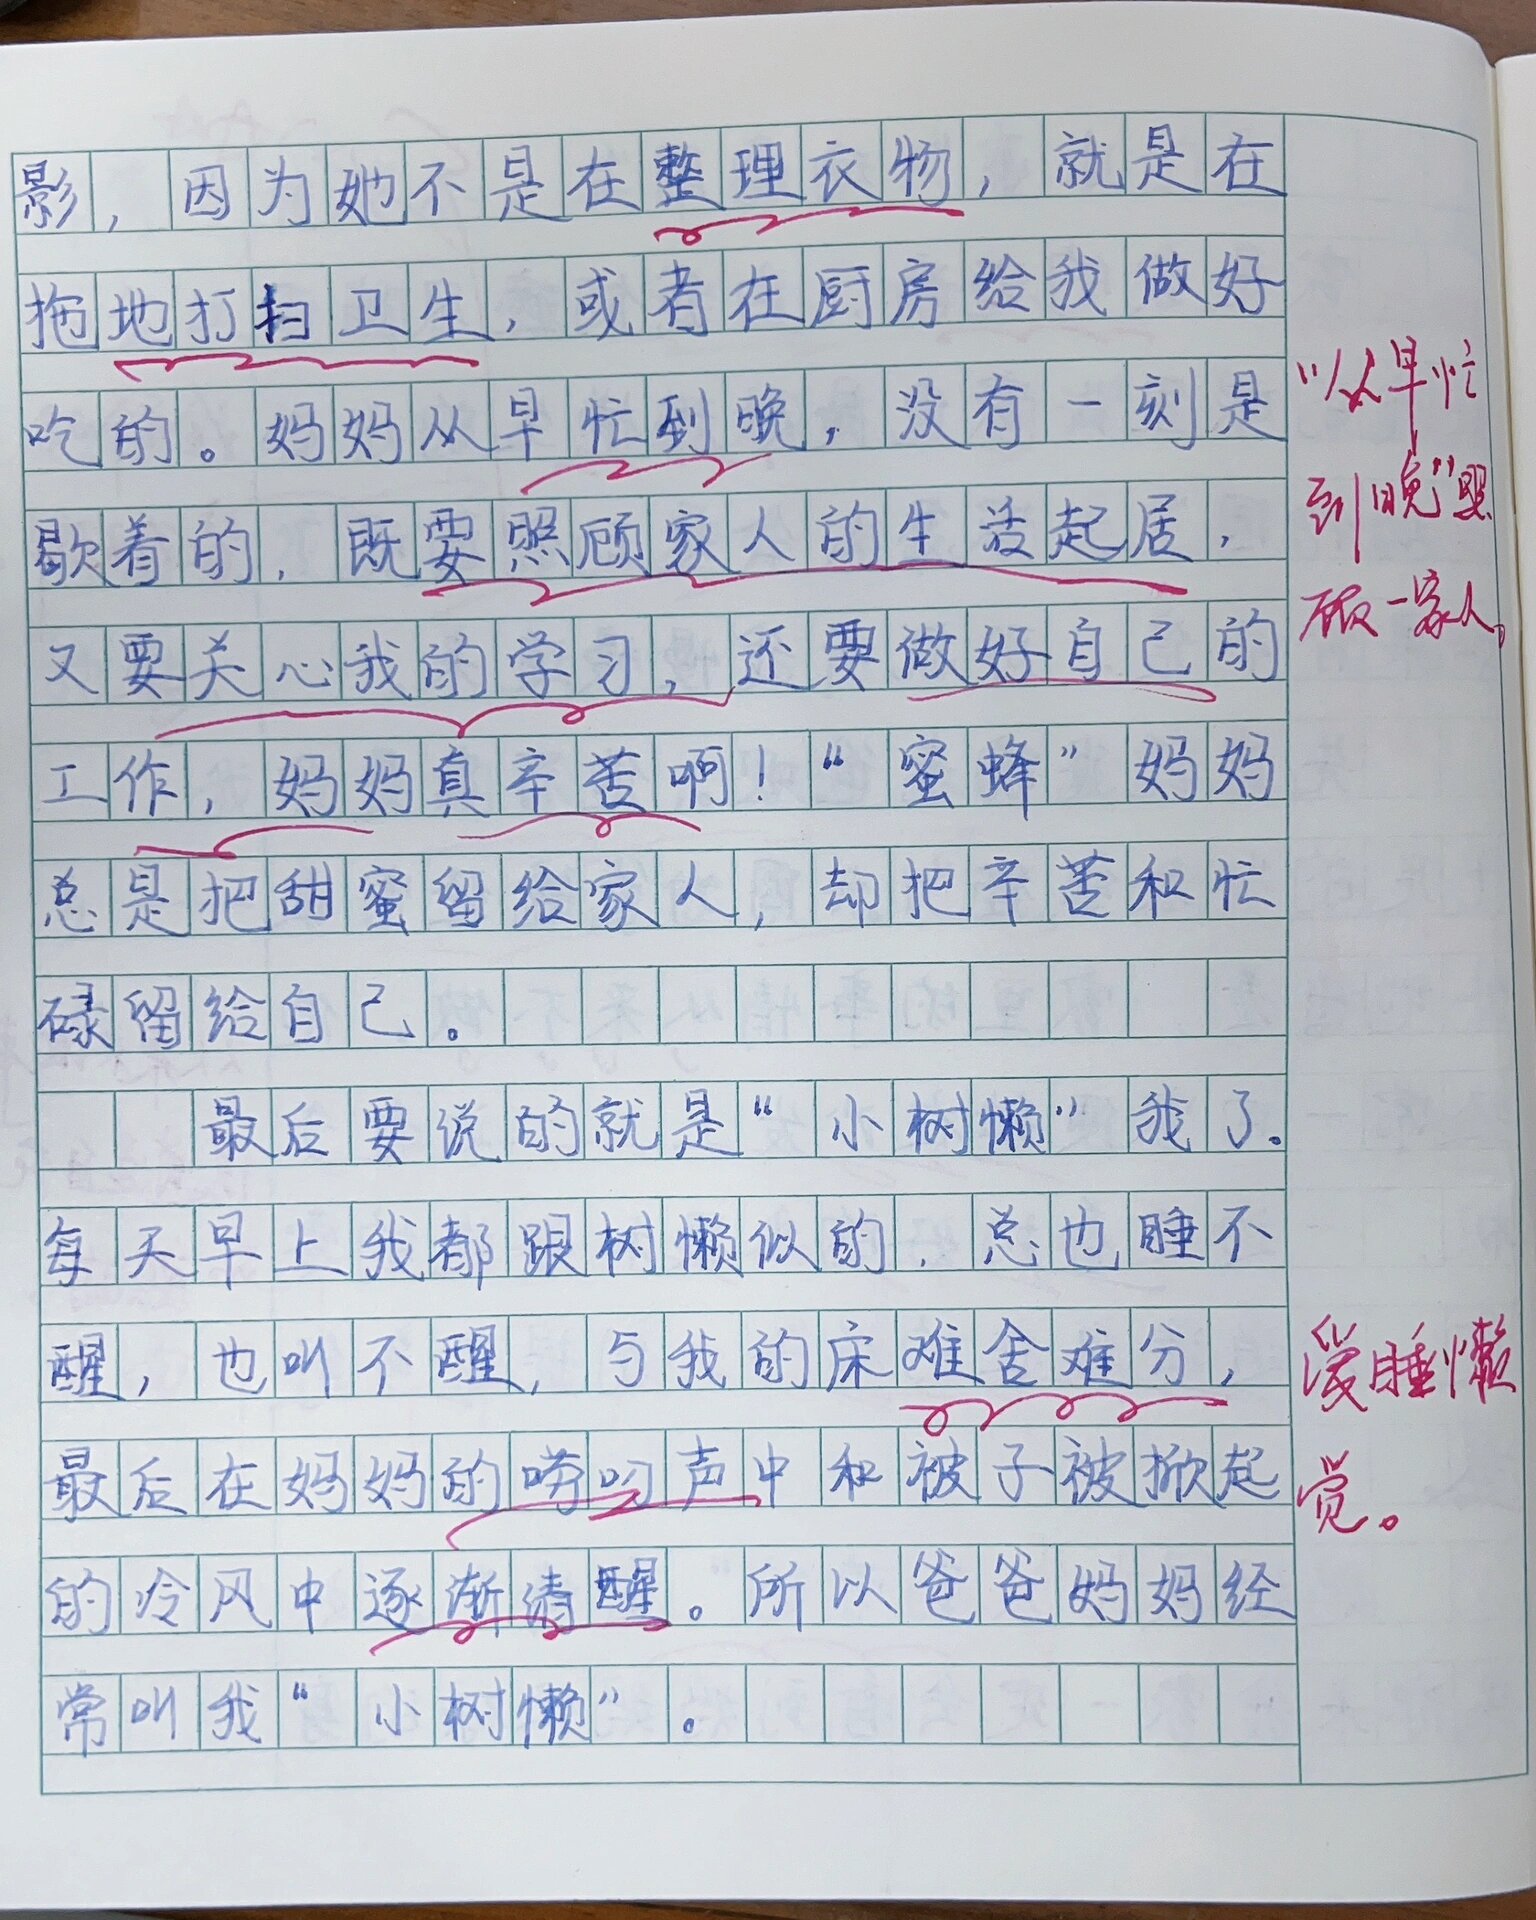 影，因为她不是在整理衣物，就是在
拖地打扫卫生，或者在厨房给我做好
吃的。妈妈从早忙到晚，没有一刻是
歇着的，既要照顾家人的生活起居，
又要关心我的学习，还要做好自己的
工作，妈妈真辛苦啊！“蜜蜂”妈妈
总是把甜蜜留给家人，却把辛苦和忙
碌留给自己。
最后要说的就是“小树懒”我了。
每天早上我都跟树懒似的，总也睡不
醒，也叫不醒，与我的床难舍难分，
最后在妈妈的唠叨声中和被子被掀起
的冷风中逐渐清醒。所以爸爸妈妈经
常叫我“小树懒”。
“从早忙
到晚”照
顾一家人。
爱睡懒
觉。